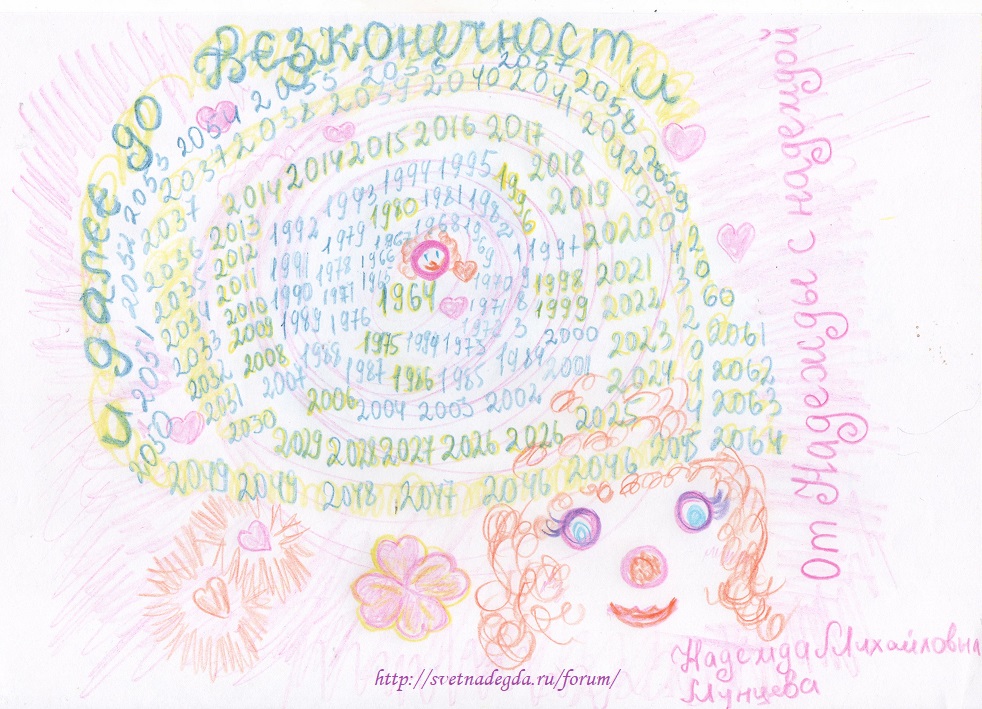 И далее до Безконечности
1964
1965
1966
1967
1968
1969
1970
1971
1972
1973
1975
1976
1971
1978
1979
1980
1981
1982
1983
1984
1985
1986
1987
1988
1989
1990
1991
1992
1993
1994
1995
1996
1997
1998
1999
2000
2001
2002
2003
2004
2006
2007
2008
2009
2010
2011
2012
2013
2014
2014
2015
2016
2017
2018
2019
2020
2021
2022
2023
2024
2025
2026
2026
2027
2028
2029
2030
2031
2032
2033
2034
2035
2036
2037
2037
2038
2039
2040
2041
2042
2043
2044
2045
2046
2046
2047
2048
2049
2049
2050
2051
2052
2053
2054
2055
2055
2057
2058
2059
2060
2061
2062
2063
2064
От Надежды с надеждой
Надежда Михайловна
Мунцева
http://svetnadegda.ru/forum/